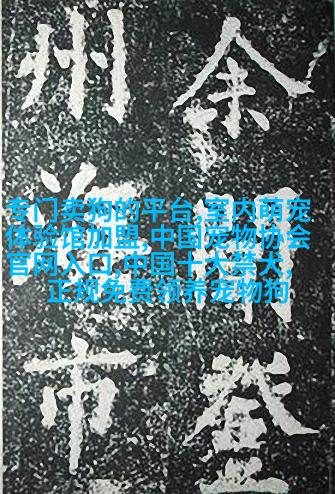 余聞登
州海市
专门卖狗的平台,室内萌宠
体验馆加盟,中国宠物协会
官网入口,中国十大禁犬,
正规免费领养宠物狗